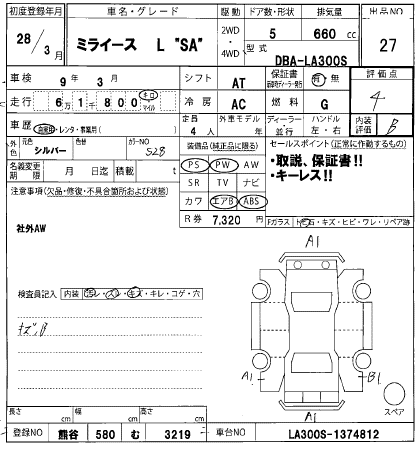 初度登録年月 車名・グレード 駆動 ドア数・形状 排気量 出品NO
28/3月 ミライース L "SA" 2WD・4WD 5 660 cc 27
型式 DBA-LA300S
車検 9年 3月 シフト AT 保証書 有・無 評価点
走行 6万1千800 キロ マイル 冷房 AC 燃料 G 4
車歴 自家用・レンタ・事業用( ) 定員 4人 外車モデル ディーラー・並行 ハンドル 左・右 内装評価 B
外色 元色 シルバー 色替 カラーNO S28
名義変更期限 月 日迄 積載 t
装備品(純正品に限る)
PS PW AW
SR TV ナビ
カワ エアB ABS
R券 7,320 円
セールスポイント(正常に作動するもの)
・取説、保証書!!
・キーレス!!
注意事項(欠品・修復・不具合箇所および状態)
社外AW
Fガラス トビ石・キズ・ヒビ・ワレ・リペア跡
検査員記入 内装 汚レ・スレ・キズ・キレ・コゲ・穴
キズB
A1
A1
B1
A1
スペア
長さ cm 幅 cm 高さ cm
登録NO 熊谷 580 む 3219 車台NO LA300S-1374812